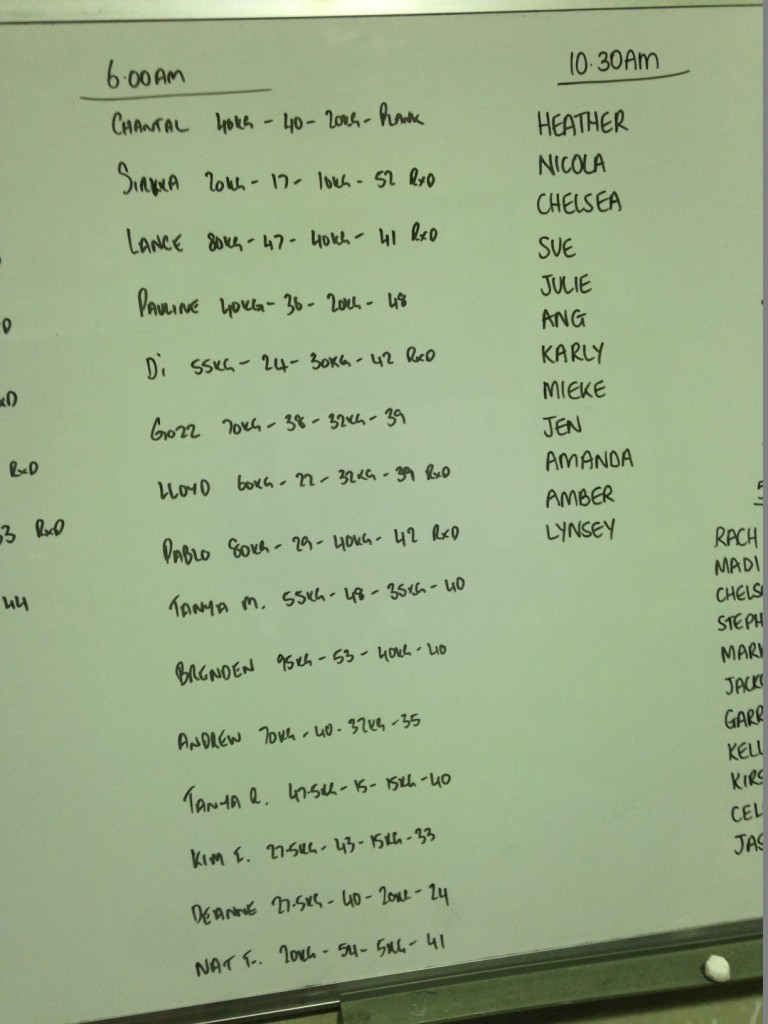 6.00AM
CHANTAL 40KG - 40 - 20KG - PLANK
SIRKKA 20KG - 17 - 10KG - 52 RxD
LANCE 80KG - 47 - 40KG - 41 RxD
PAULINE 40KG - 36 - 20KG - 48
Di 55KG - 24 - 30KG - 42 RxD
GOZZ 70KG - 38 - 32KG - 39
LLOYD 60KG - 22 - 32KG - 39 RxD
PABLO 80KG - 29 - 40KG - 42 RxD
TANYA M. 55KG - 48 - 35KG - 40
BRENDEN 95KG - 53 - 40KG - 40
ANDREW 70KG - 40 - 32KG - 35
TANYA R. 47.5KG - 15 - 15KG - 40
KIM E. 27.5KG - 43 - 15KG - 33
DEANNE 27.5KG - 40 - 20KG - 24
NAT F. 20KG - 54 - 5KG - 41
10.30AM
HEATHER
NICOLA
CHELSEA
SUE
JULIE
ANG
KARLY
MIEKE
JEN
AMANDA
AMBER
LYNSEY
D
xD
RxD
3 RxD
44
RACH
MADI
CHELS
STEPH
MARK
JACK
GARR
KELL
KIRS
CEL
JAS